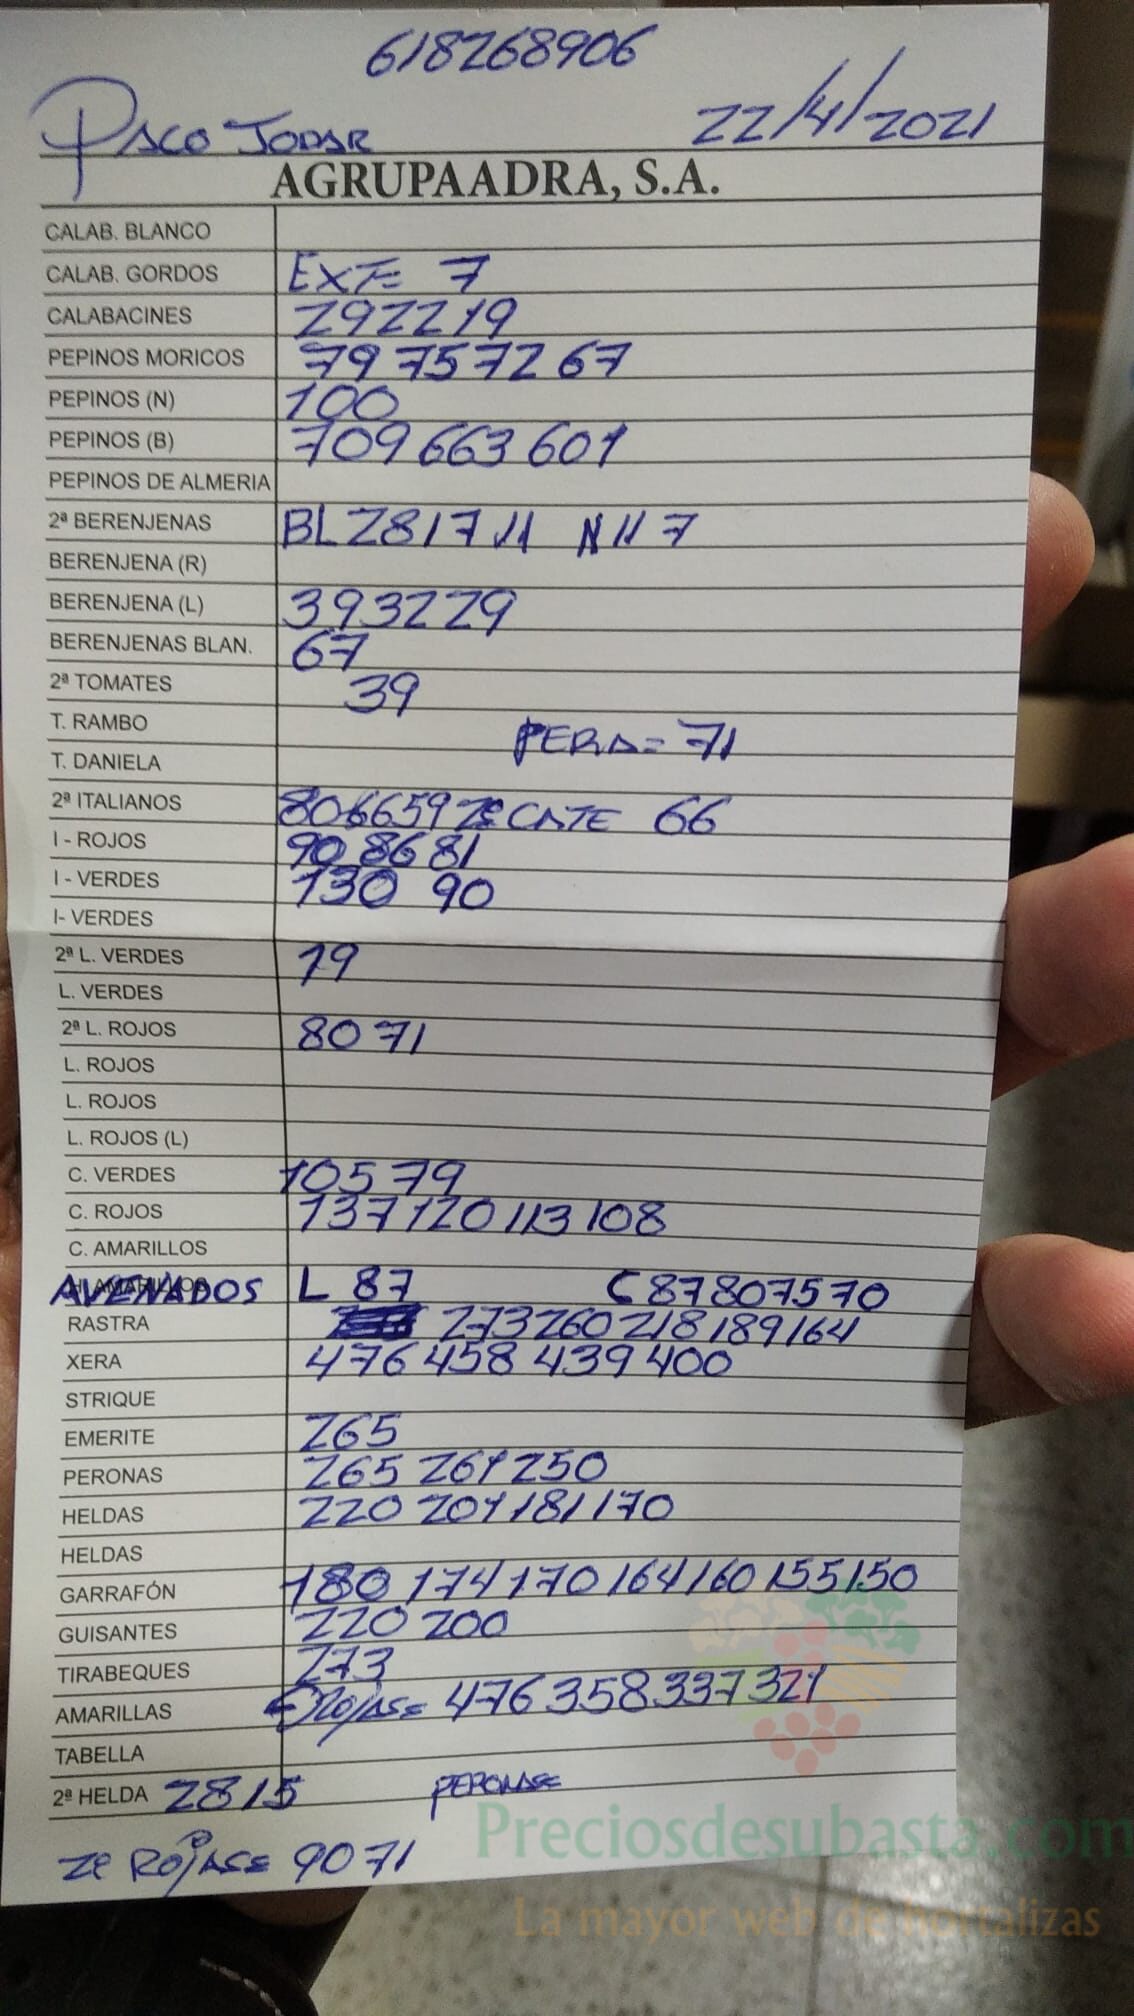 618268906
PACO JODAR 22/4/2021
AGRUPAADRA, S.A.
CALAB. BLANCO
CALAB. GORDOS EXT= 7
CALABACINES 292219
PEPINOS MORICOS 79 757267
PEPINOS (N) 100
PEPINOS (B) 709 663 601
PEPINOS DE ALMERIA
2ª BERENJENAS BL 2817 11 N 11 7
BERENJENA (R)
BERENJENA (L) 393229
BERENJENAS BLAN. 67
2ª TOMATES 39
T. RAMBO PERA= 71
T. DANIELA
2ª ITALIANOS 806659 2ª CATE 66
I - ROJOS 90 86 81
I - VERDES 130 90
I- VERDES
2ª L. VERDES 19
L. VERDES
2ª L. ROJOS 80 71
L. ROJOS
L. ROJOS
L. ROJOS (L)
C. VERDES 105 79
C. ROJOS 137 120 113 108
C. AMARILLOS
AVENADOS L 87 C 87807570
RASTRA 273 260 218 189 164
XERA 476 458 439 400
STRIQUE
EMERITE 265
PERONAS 265 261 250
HELDAS 220 201 181 170
HELDAS
GARRAFÓN 180 174 170 164 160 155 150
GUISANTES 220 200
TIRABEQUES 273
AMARILLAS ROJAS= 476 358 337 321
TABELLA
2ª HELDA 28 15 PERONAS=
2ª ROJAS= 90 71
Preciosdesubasta.com
La mayor web de hortalizas